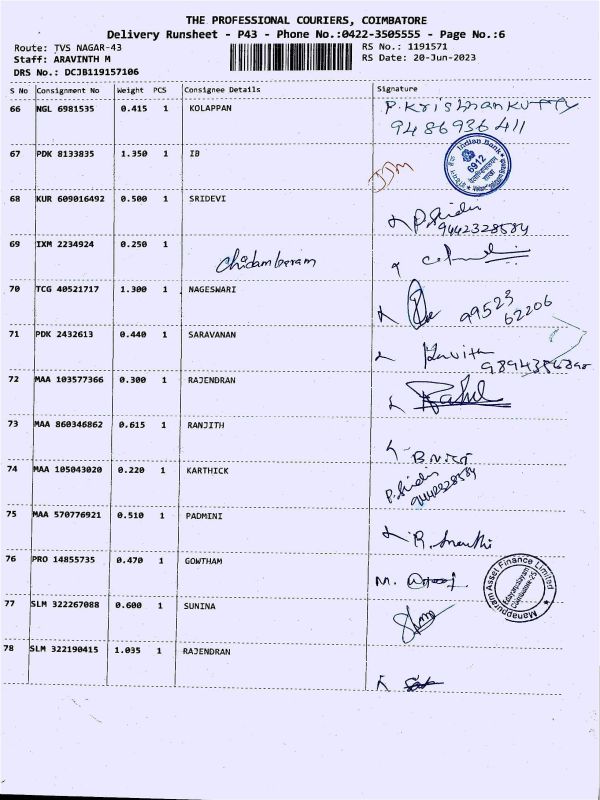 THE PROFESSIONAL COURIERS, COIMBATORE
Delivery Runsheet - P43 - Phone No.:0422-3505555 - Page No.:6
Route: TVS NAGAR-43 RS No.: 1191571
Staff: ARAVINTH M RS Date: 20-Jun-2023
DRS No.: DCJB119157106
S No Consignment No Weight PCS Consignee Details Signature
66 NGL 6981535 0.415 1 KOLAPPAN P.Krishnankutty
9486936411
67 PDK 8133835 1.350 1 IB Indian Bank 6912
68 KUR 609016492 0.500 1 SRIDEVI P.Sridevi
9442328584
69 IXM 2234924 0.250 1
Chidambaram
70 TCG 40521717 1.300 1 NAGESWARI 99523
62206
71 PDK 2432613 0.440 1 SARAVANAN Kavitha
72 MAA 103577366 0.300 1 RAJENDRAN
73 MAA 860346862 0.615 1 RANJITH
74 MAA 105043020 0.220 1 KARTHICK P.Sridevi
9442328584
75 MAA 570776921 0.510 1 PADMINI
76 PRO 14855735 0.470 1 GOWTHAM M.
Manappuram Asset Finance Limited
77 SLM 322267088 0.600 1 SUNINA
78 SLM 322190415 1.035 1 RAJENDRAN